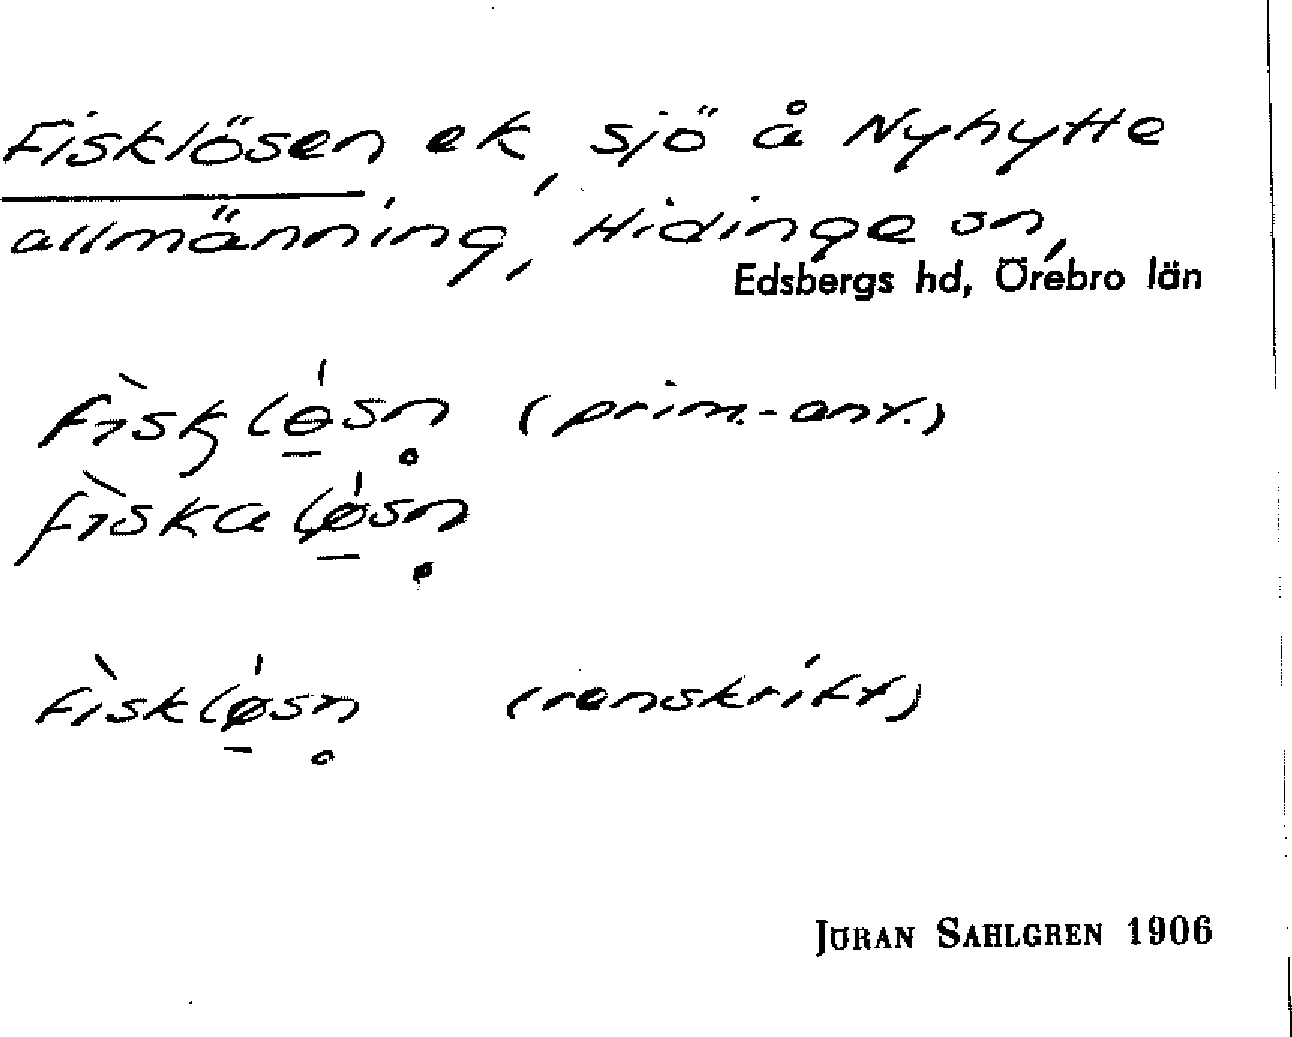 Fisklösen ek, sjö å Nyhytte
allmänning, Hidinge sn,
Edsbergs hd, Örebro län
fìskl<u>ø</u>́sn̥ (prim.-ant.)
fìskal<u>ø</u>́sn̥
fìskl<u>ø</u>́sn̥ (renskrift)
JÖRAN SAHLGREN 1906